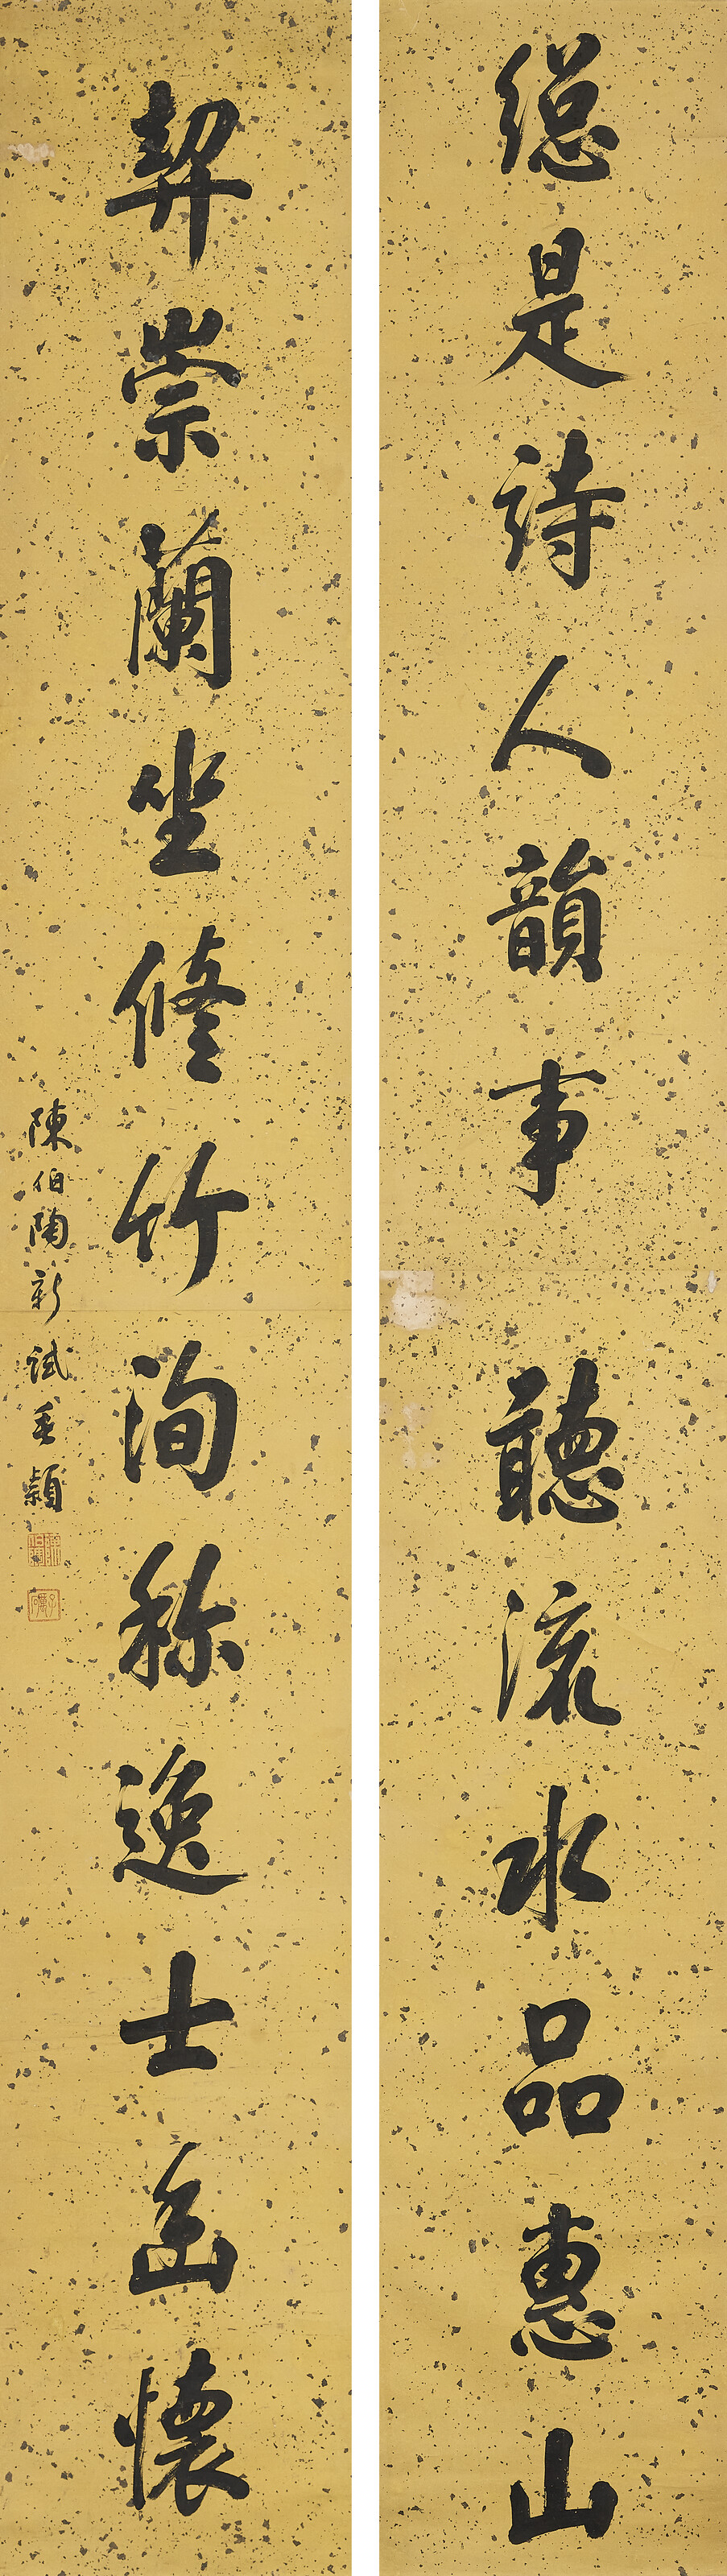 緫是詩人韻事聽流水品惠山
契崇蘭坐修竹洵称逸士高懷
陳伯陶新試秃穎